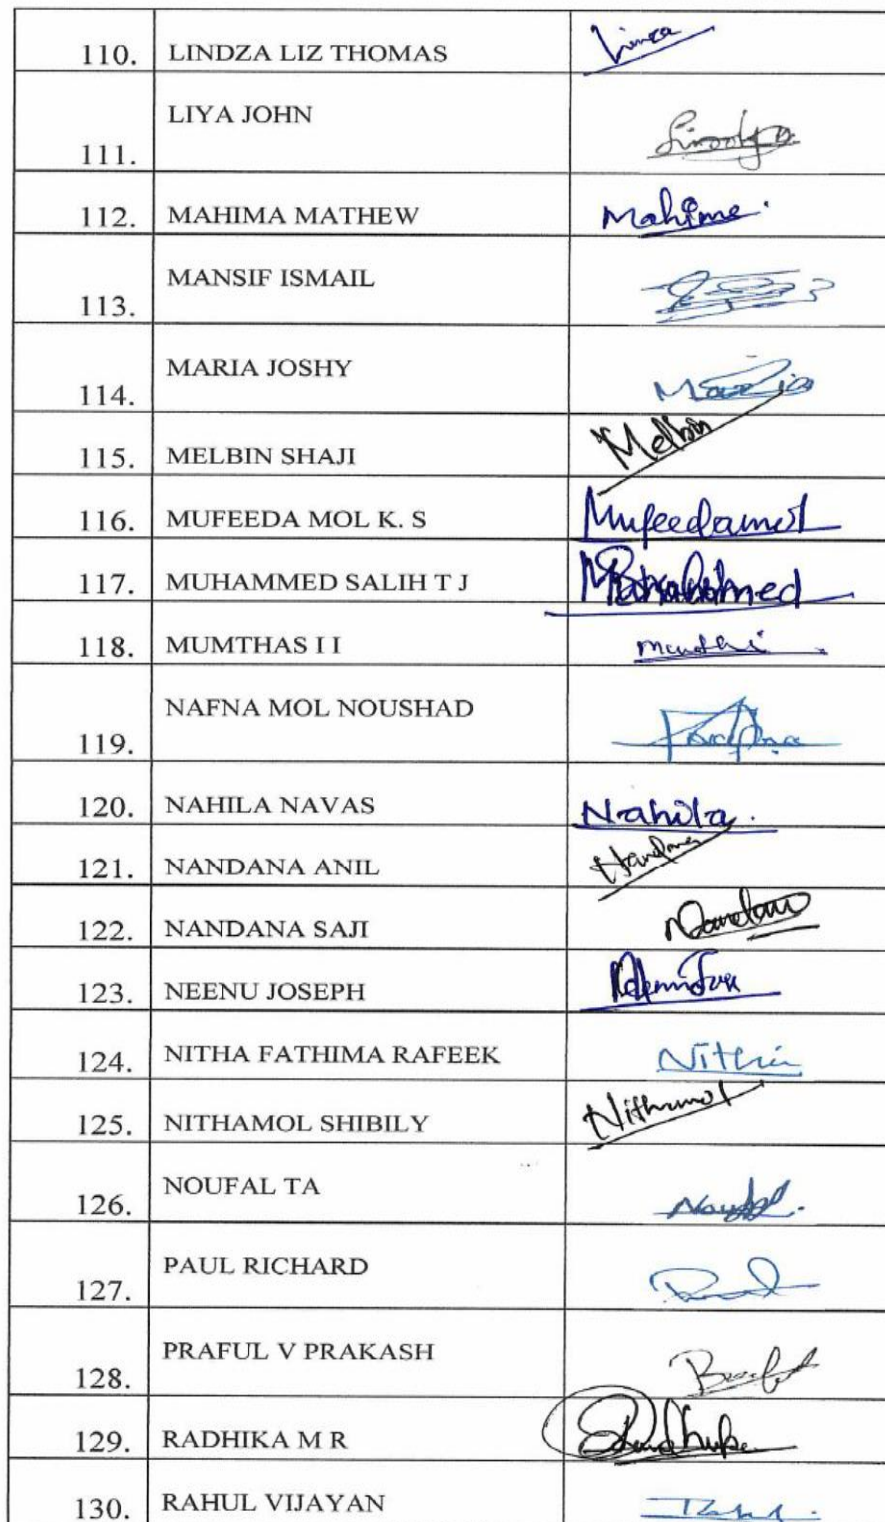 110. LINDZA LIZ THOMAS
111. LIYA JOHN
112. MAHIMA MATHEW Mahime.
113. MANSIF ISMAIL
114. MARIA JOSHY Maria
115. MELBIN SHAJI Melbin
116. MUFEEDA MOL K. S Mufeedamol
117. MUHAMMED SALIH T J
118. MUMTHAS I I
119. NAFNA MOL NOUSHAD
120. NAHILA NAVAS Nahila.
121. NANDANA ANIL
122. NANDANA SAJI
123. NEENU JOSEPH
124. NITHA FATHIMA RAFEEK
125. NITHAMOL SHIBILY Nithamol
126. NOUFAL TA
127. PAUL RICHARD
128. PRAFUL V PRAKASH
129. RADHIKA M R
130. RAHUL VIJAYAN